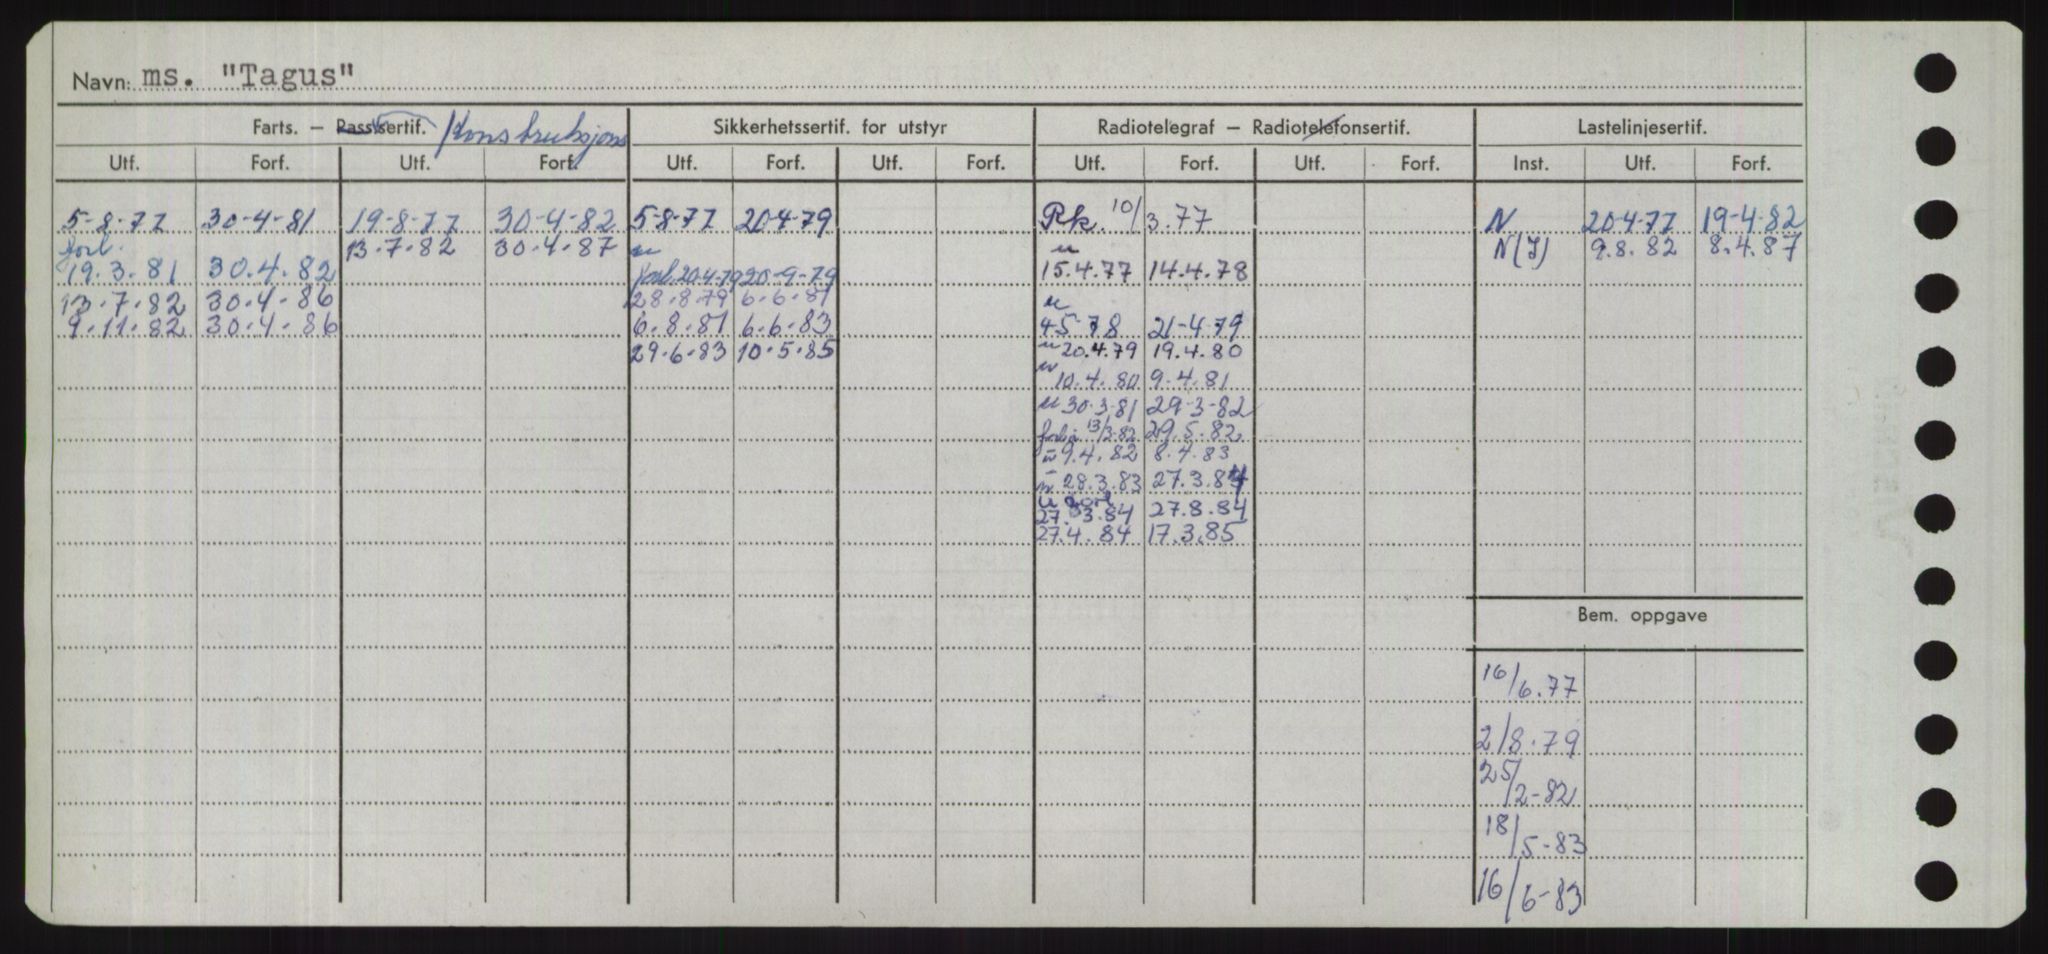 Navn: ms. "Tagus"
Farts. — Passasertif. Konstruksjons Sikkerhetssertif. for utstyr Radiotelegraf — Radiotelefonsertif. Lastelinjesertif.
Utf. Forf. Utf. Forf. Utf. Forf. Utf. Forf. Utf. Forf. Utf. Forf. Inst. Utf. Forf.
5-8-77 30-4-81 19-8-77 30-4-82 5-8-77 20-4-79 Rk. 10/3.77 N 20-4-77 19-4-82
forl. 13.7.82 30.4.87 u u N(I) 9.8.82 8.4.87
19.3.81 30.4.82 forl. 20-4-79 20-9-79 15.4.77 14.4.78
13.7.82 30.4.86 28.8.79 6.6.81 u
9.11.82 30.4.86 6.8.81 6.6.83 4-5-78 21-4-79
29.6.83 10.5.85 u 20.4.79 19.4.80
u 10.4.80 9.4.81
u 30.3.81 29-3-82
13/3-82 29.5.82
u 9.4.82 8.4.83
u 28.3.83 27.3.84
u
27.3.84 27.8.84
27.4.84 17.3.85
Bem. oppgave
16/6.77
2/8.79
25/2-82
18/5-83
16/6-83